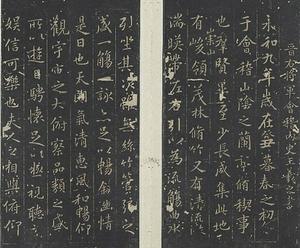 晉右將軍會稽內史王羲之書
永和九年歲在癸丑暮春之初會
于會稽山陰之蘭亭脩稧事
也群賢畢至少長咸集此地
有崇山峻領茂林脩竹又有清流激
湍暎帶左右引以為流觴曲水
列坐其次雖無絲竹管弦之
盛一觴一詠亦足以暢敘幽情
是日也天朗氣清惠風和暢仰
觀宇宙之大俯察品類之盛
所以遊目騁懷足以極視聽之
娛信可樂也夫人之相與俯仰